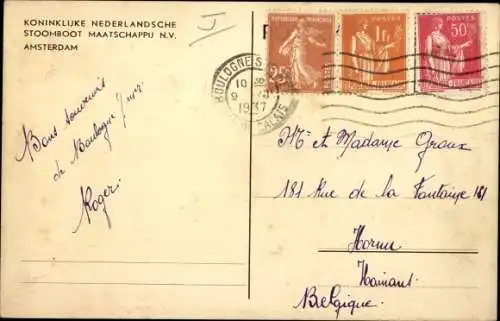 KONINKLIJKE NEDERLANDSCHE
STOOMBOOT MAATSCHAPPIJ N.V.
AMSTERDAM
Bons souvenirs
de Boulogne s/mer
Roger.
BOULOGNE S
10
9
1937
CALAIS
25c
POSTES
1F
POSTES
50c
Mr et Madame Graux
181 Rue de la Fontaine 181
Hornu
Hainaut
Belgique.